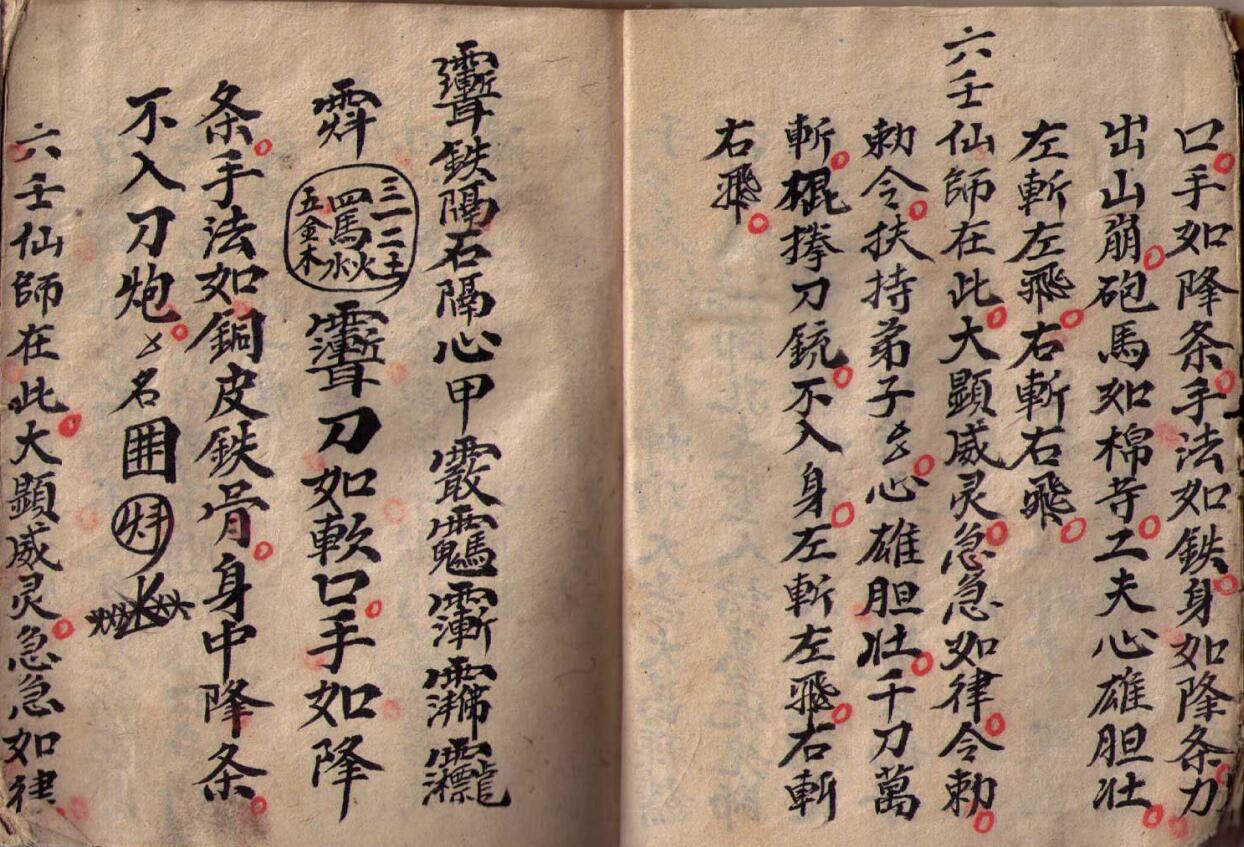 口手如降条手法如鉄身如降条力
出山崩砲馬如棉寺工夫心雄胆壮
左斬左飛右斬右飛
六壬仙師在此大顕威灵急急如律令勅
勅令扶持弟子〻心雄胆壮千刀萬
斬棍拳刀銃不入身左斬左飛右斬
右飛
鉄隔石隔心甲
三一二土
四馬火水
五金木
刀如軟口手如降
条手法如銅皮鉄骨身中降条
不入刀炮〻名
六壬仙師在此大顕威灵急急如律